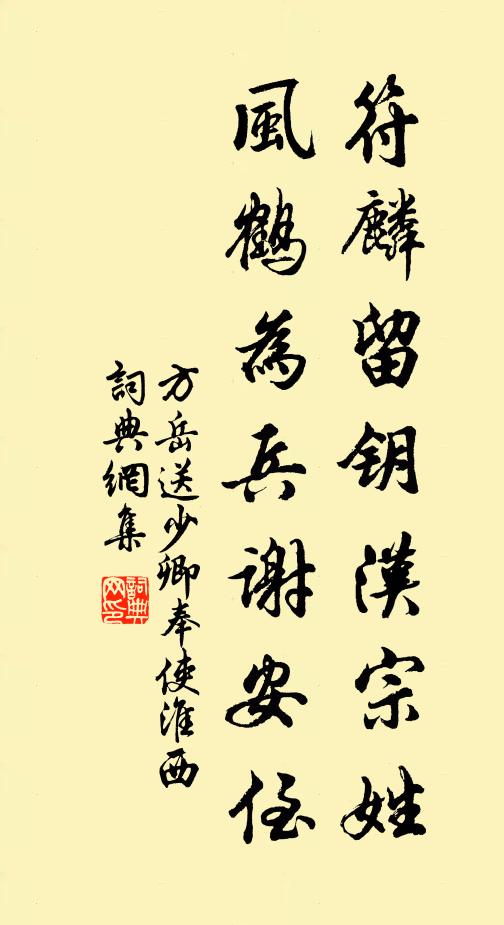 符麟留钥漢宗姓
風鶴為兵謝安侄
方岳送少卿奉使淮西
詞典網集
詞典网印